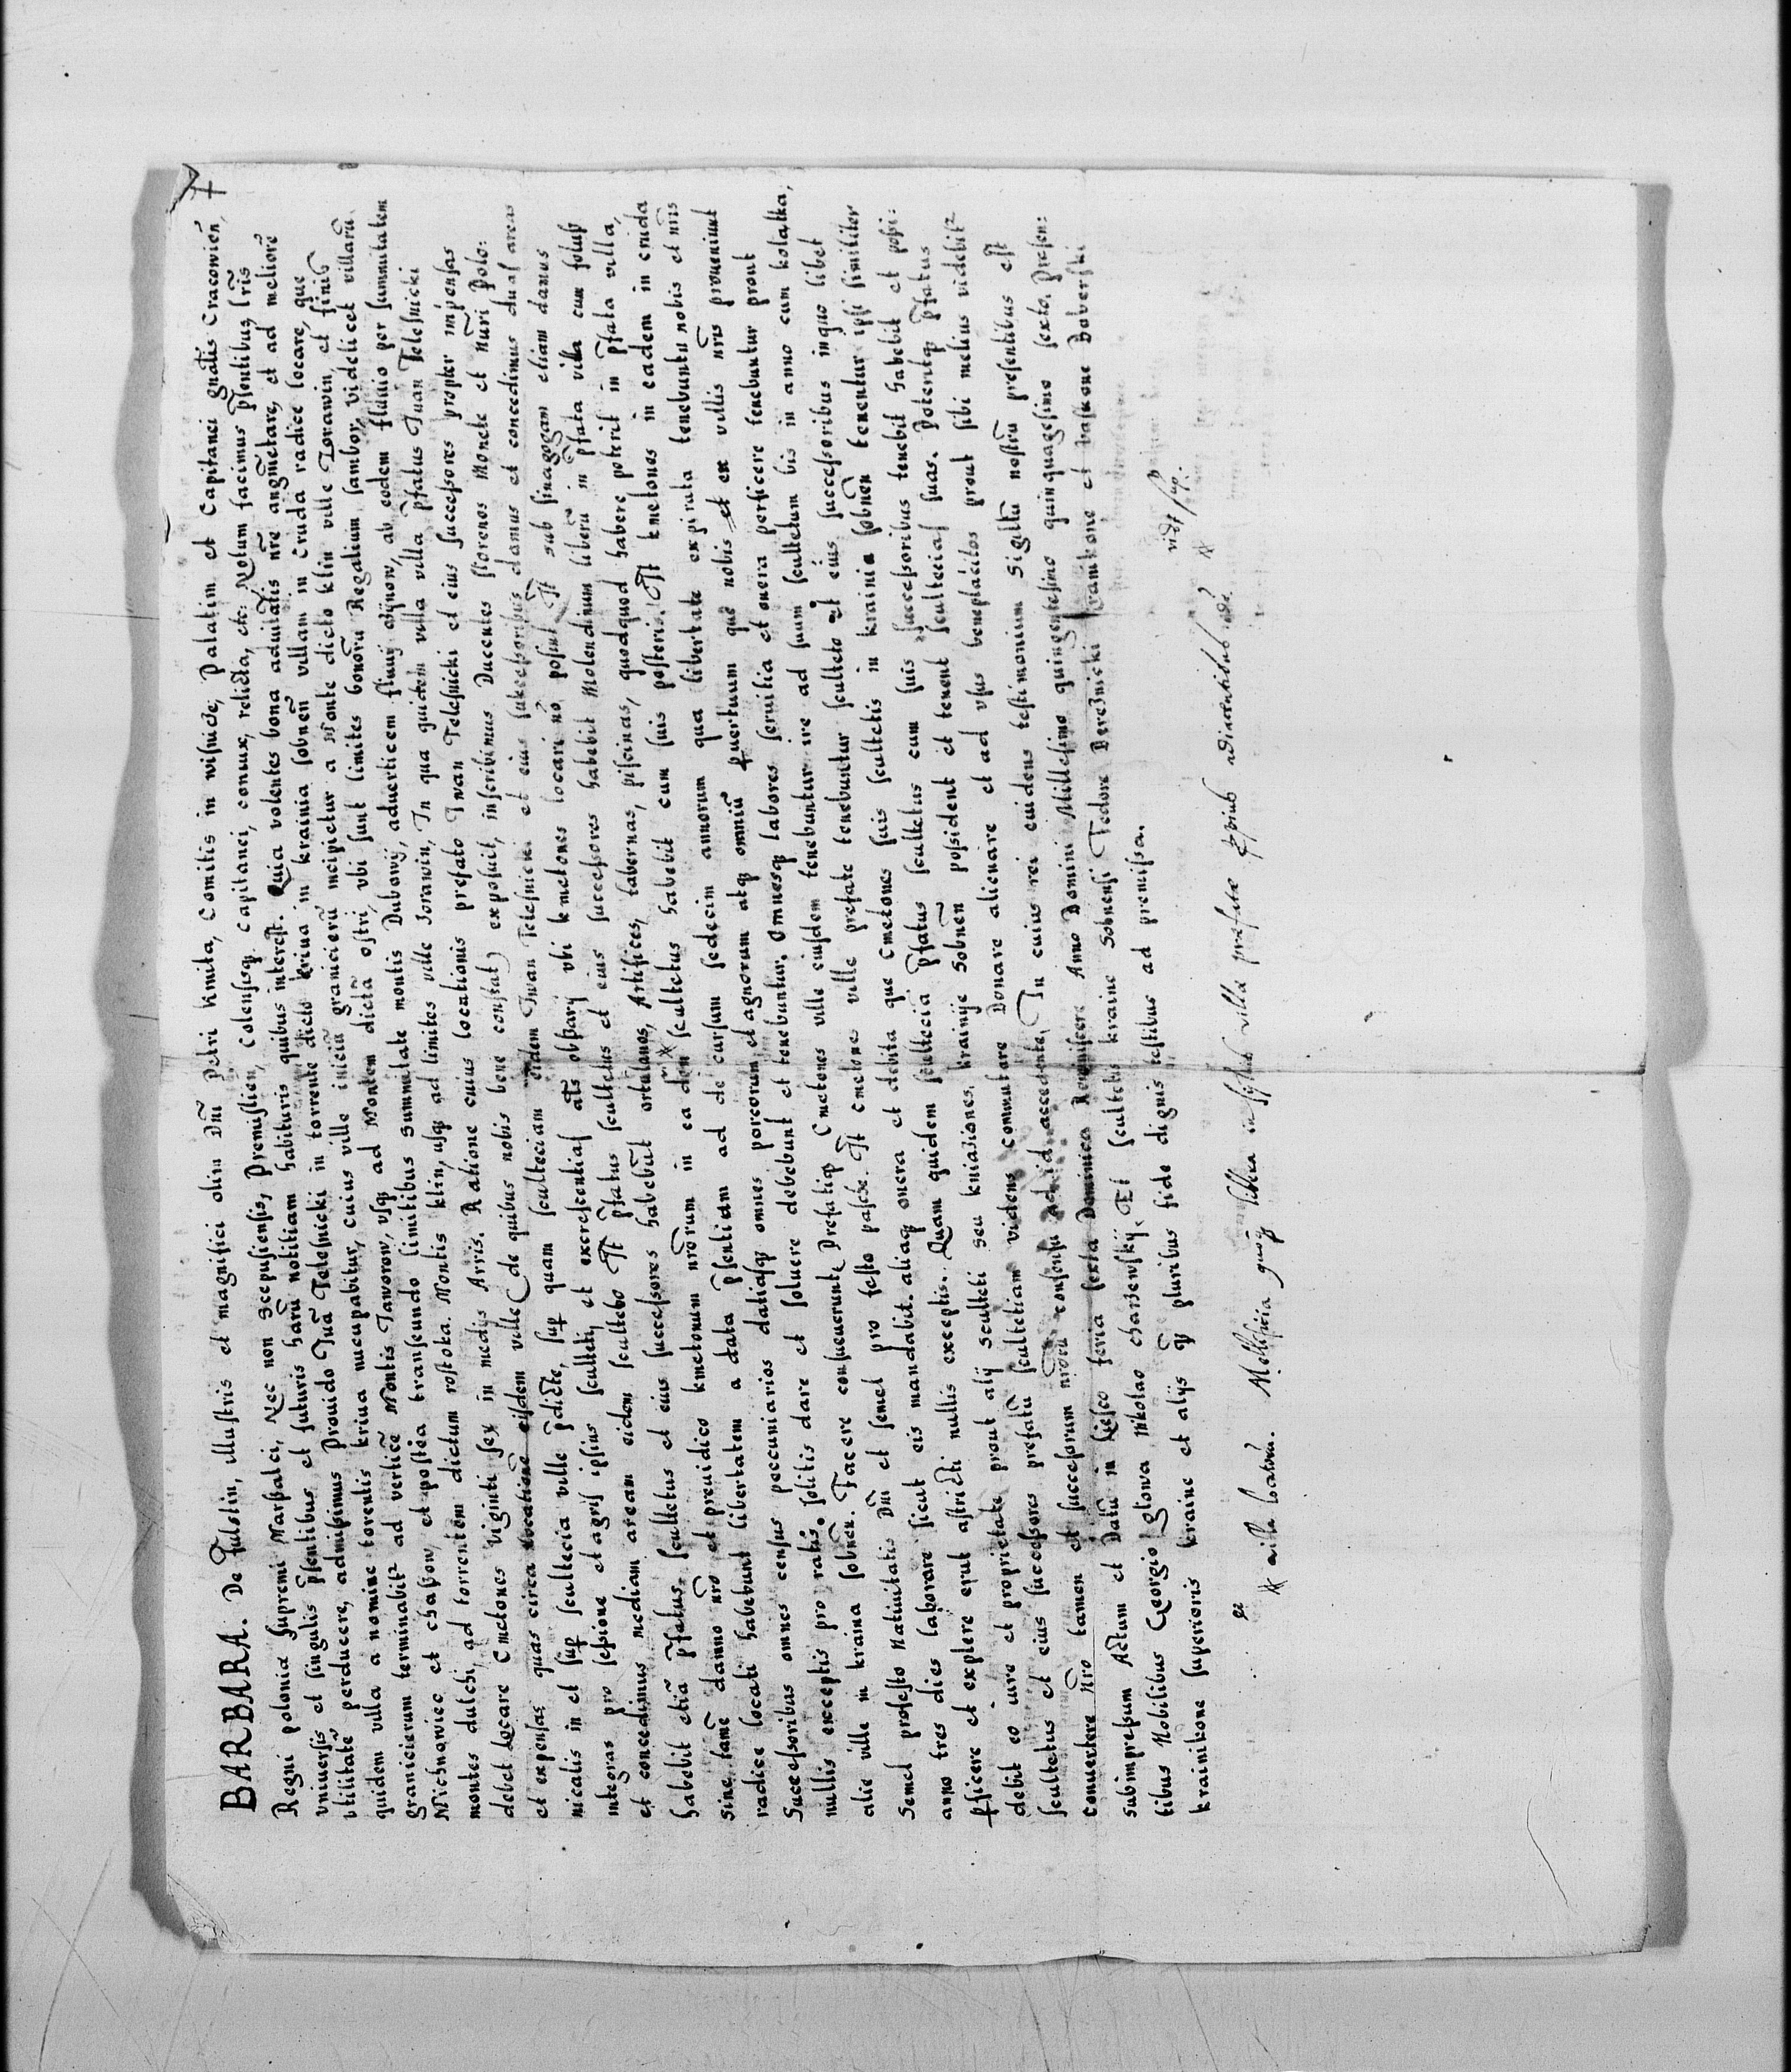 BARBARA. De Fulstin, illustris et magnifici olim Dni Petri kmita, Comitis in wisnicze, Palatini et Capitanei gnalis Cracowien,
Regni polonie Supremi Marßalci, Nec non Scepusiensis, Premislien, Colensisq capitanei, coniux, relicta, etc. Notum facimus psentibus lris
vniuersis et singulis psentibus et futuris haru notitiam habituris quibus interest. Quia volentes bona aduitatis nre augmetare, et ad meliore
vtilitate perducere, admisimus Prouido Iua Telesnicki in torrente dicto kriua in krainia sobnen villam in cruda radice locare, que
quidem villa a nomine torentis kriua nucupabitur, cuius ville iniciu graniciеru incipietur a Monte dicto klin ville Zorawin, et finis
granicierum terminabitz ad vertice Montis Jaworow, vsq ad Montem dicta ostri, vbi sunt limites bonoru Regalium sambor, videlicet villaru
Michnowiec et chaßow, et postea transeundo limitibus summitate montis Dubowy, aduerticem fluuij, ab eodem fluuio per summitatem
montes dulchi, ad torrentem dictum rostoka. Montis klin, usq ad limites ville Zorawin, In qua quidem villa pfatus Iuan Telesnicki
debet Locare Cmetones viginti sex in medijs Arris. Ratione cuius locationis prefato Iwan Telesnicki et eius successores propter impensas
et expensas quas circa locatione eisdem ville (de quibus nobis bene constat) exposuit, inscribimus Ducentos florenos Monete et Nuri Polo:
nicalis in et sup scultecia ville pdicte, sup quam sculteciam eidem Iwan Telesnicki et eius successoribus damus et concedimus duas areas
integras pro sessione et agris ipsius sculteti, et excrescentias als obßary vbi kmetones locari no posint Et sub sinagogam etiam damus
et concedimus mediam aream eidem scultebo Et pfatus scultetus et eius successores habebit Molendinum liberu in pfata villa cum folusß
habebit etia pfatus scultetus et eius successores habebut ortulanos, Artifices, tabernas, piscinas, quodquod habere poterit in pfata villa,
sine tame danno nro et preuidico kmetonum nrorum in ea dem scultetus habebit cum suis posteris. Et kmetones in eadem in cruda
radice locati habebunt libertatem a data psentium ad de cursum sedecim annorum qua libertate expirata tenebuntu nobis et nris
Successoribus omnes census peccuniarios datiasq omnes porcorum et agnorum atq omniu quertuum que nobis et ex villis nris proueniunt
nullis exceptis pro ratis. solitis dare et soluere debebunt et tenebuntur. Omnesq labores seruitia et onera perficere tenebuntur prout
alie ville in kraina sobnen. Facere consueuerunt. Prefatiq Cmetones ville eiusdem tenebuntur ire ad suum scultetum bis in anno cum kolatka,
Semel profesto Natiuitatis Dni et semel pro festo pasche. Et cmetones ville prefate tenebuntur sculteto et eius successoribus inquo libet
anno tres dies laborare sicut eis mandabit. aliaq onera et debita que Cmetones suis scultetis in krainia sobnen tenentur ipsi similiter
pficere et explere erut astricti nullis exceptis. Quam quidem scultecia pfatus scultetus cum suis successoribus tenebit habebit et posi:
debit eo iure et proprietate prout alij sculteti seu kniaziones, krainije Sobnen possident et tenent scultecias suas. Poteritq pfatus
scultetus et eius successores prefatu scultetiam videns commutare Donare alienare et ad vsus beneplacitos prout sibi melius videbitz
conuertere nro tamen et successorum nroru consensu ad id accedente, In cuius rei euidens testimonium Sigillu nostru presentibus est
subimpressum Actum et Datu in Liesco feria sexta Dominica Reminiscere Anno Domini Millesimo quingentesimo quinquagesimo sexto. Presen:
tibus Nobilibus Georgio glowa Nikolao charzewskij, Et scultetis kraine Sobnensij Tedore Dereznicki kramikone et vaskone Boberski
krainikone superioris kraine et alijs q pluribus fide dignis testibus ad premissa.
vidt sup.
villa locatum. Mellificia quoq libera in sylvis villa prefata adiacentibus